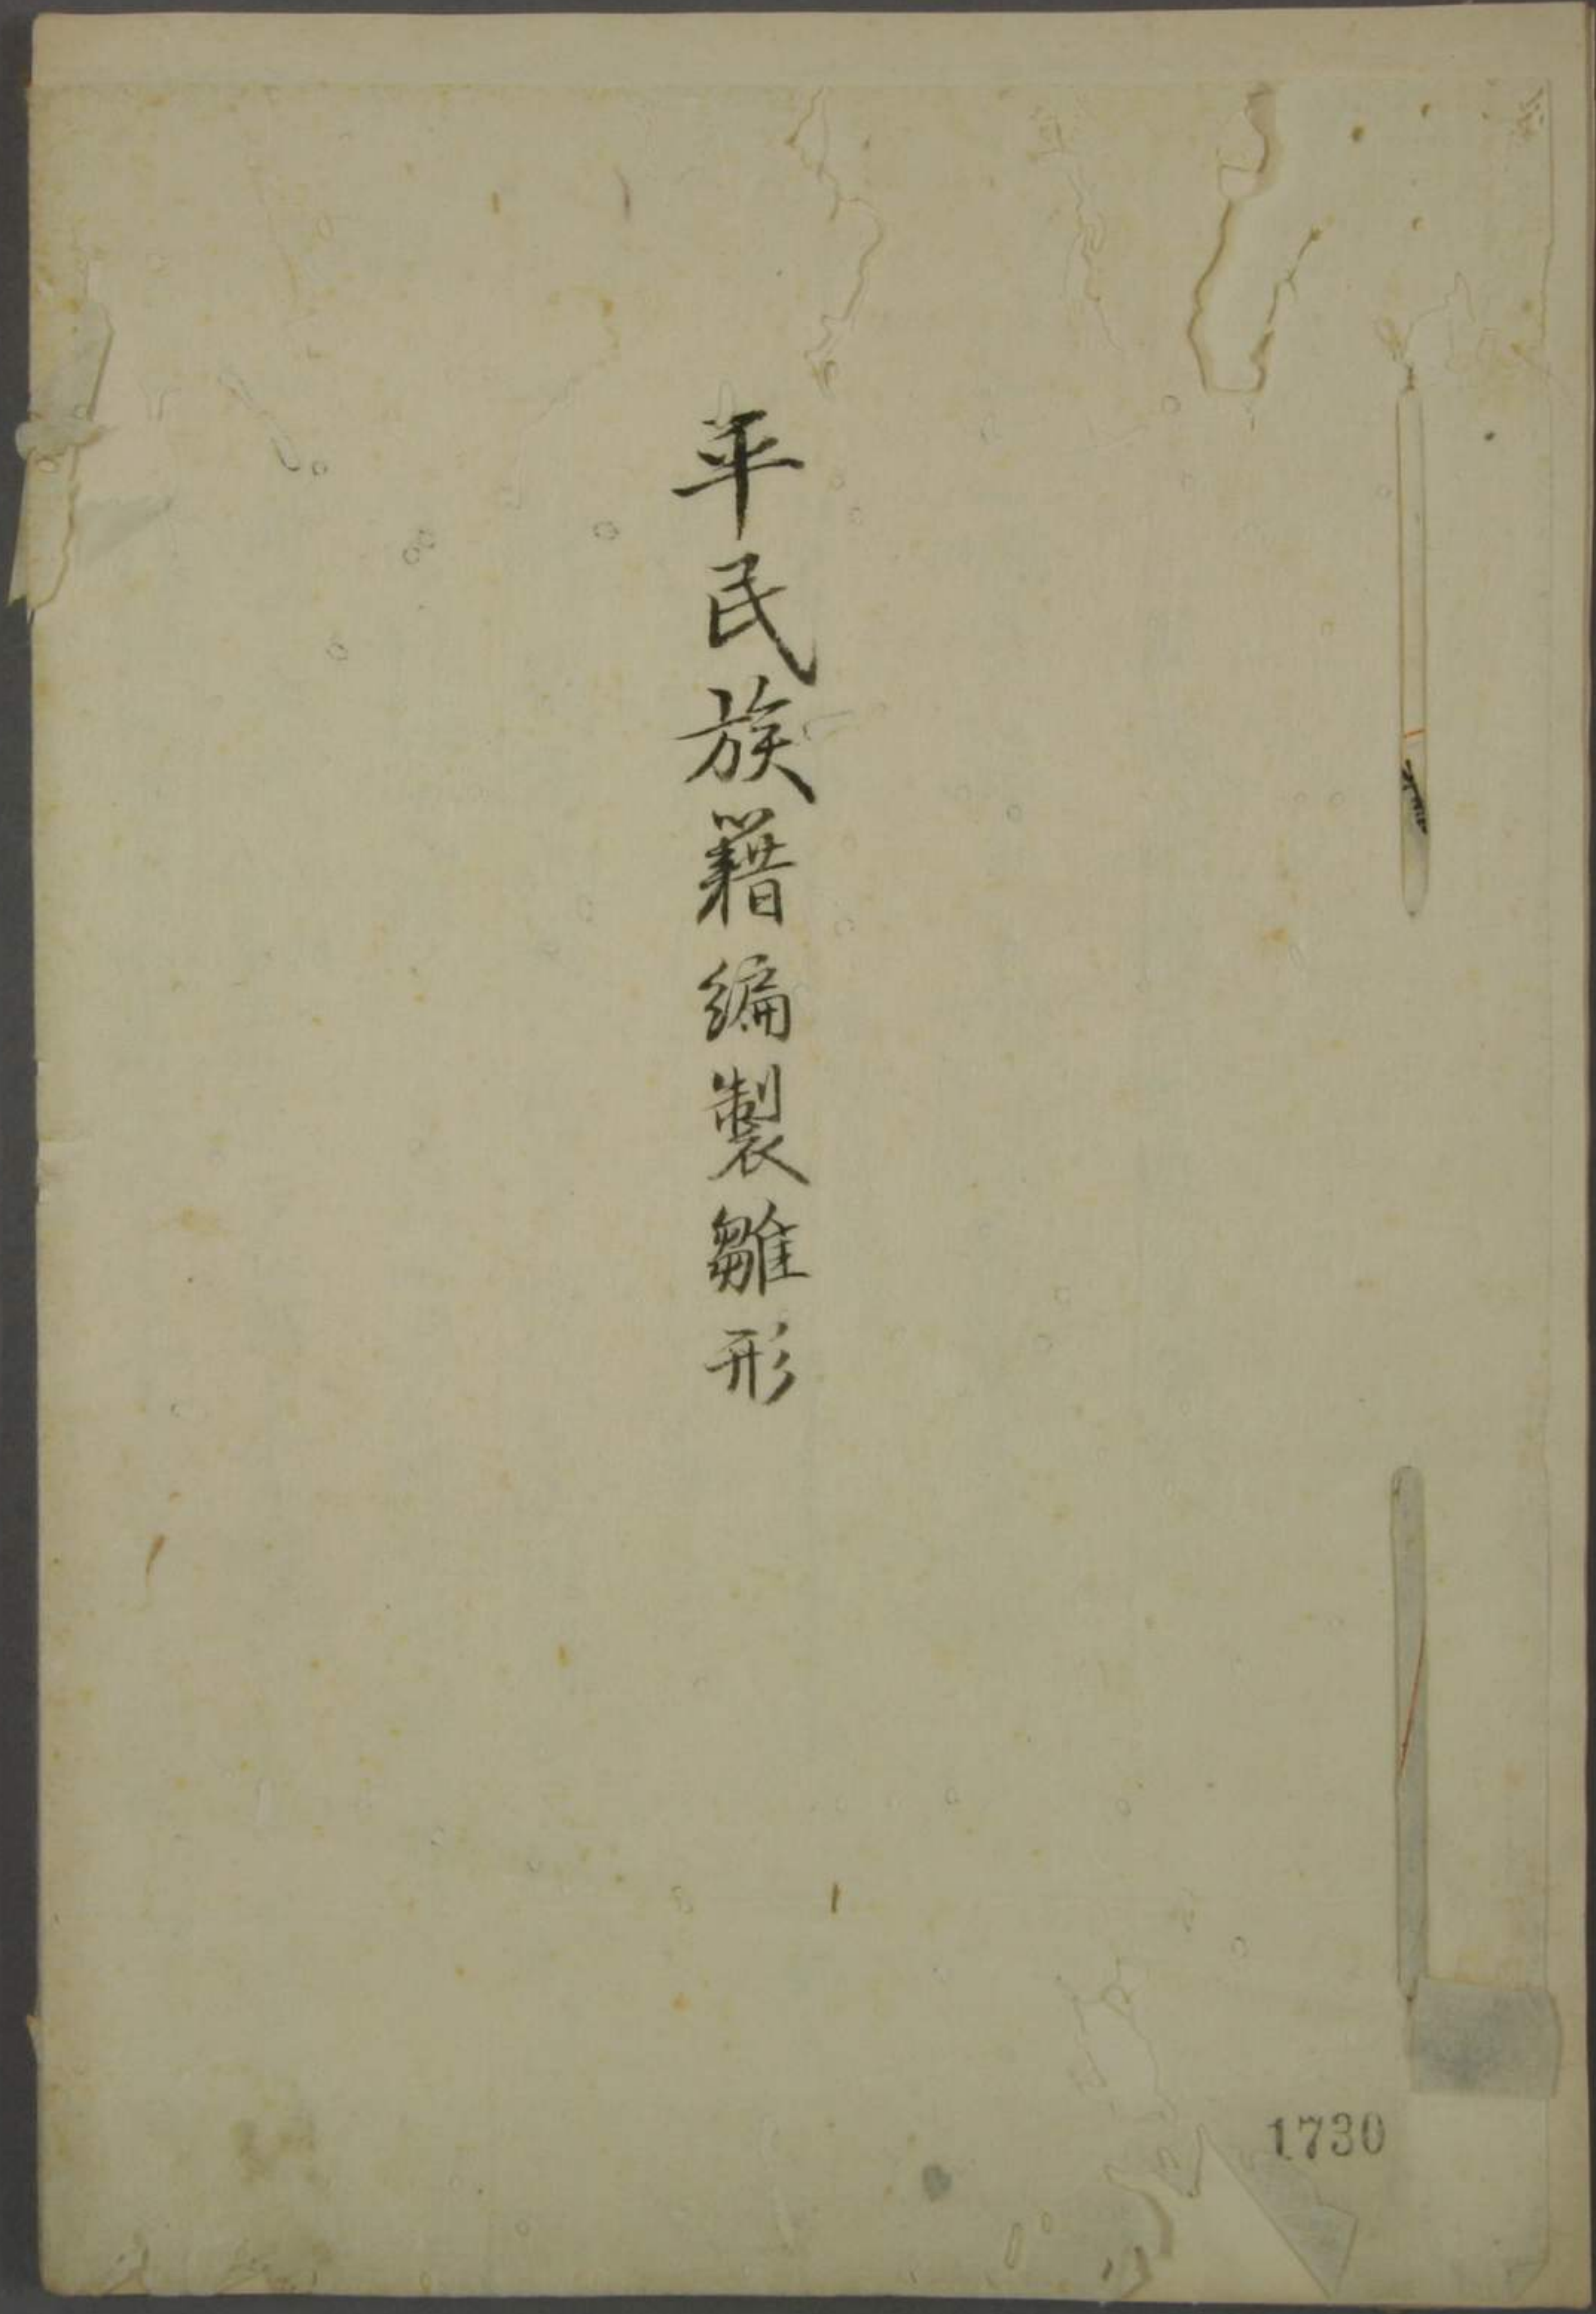 平民族籍編製雛形
1730